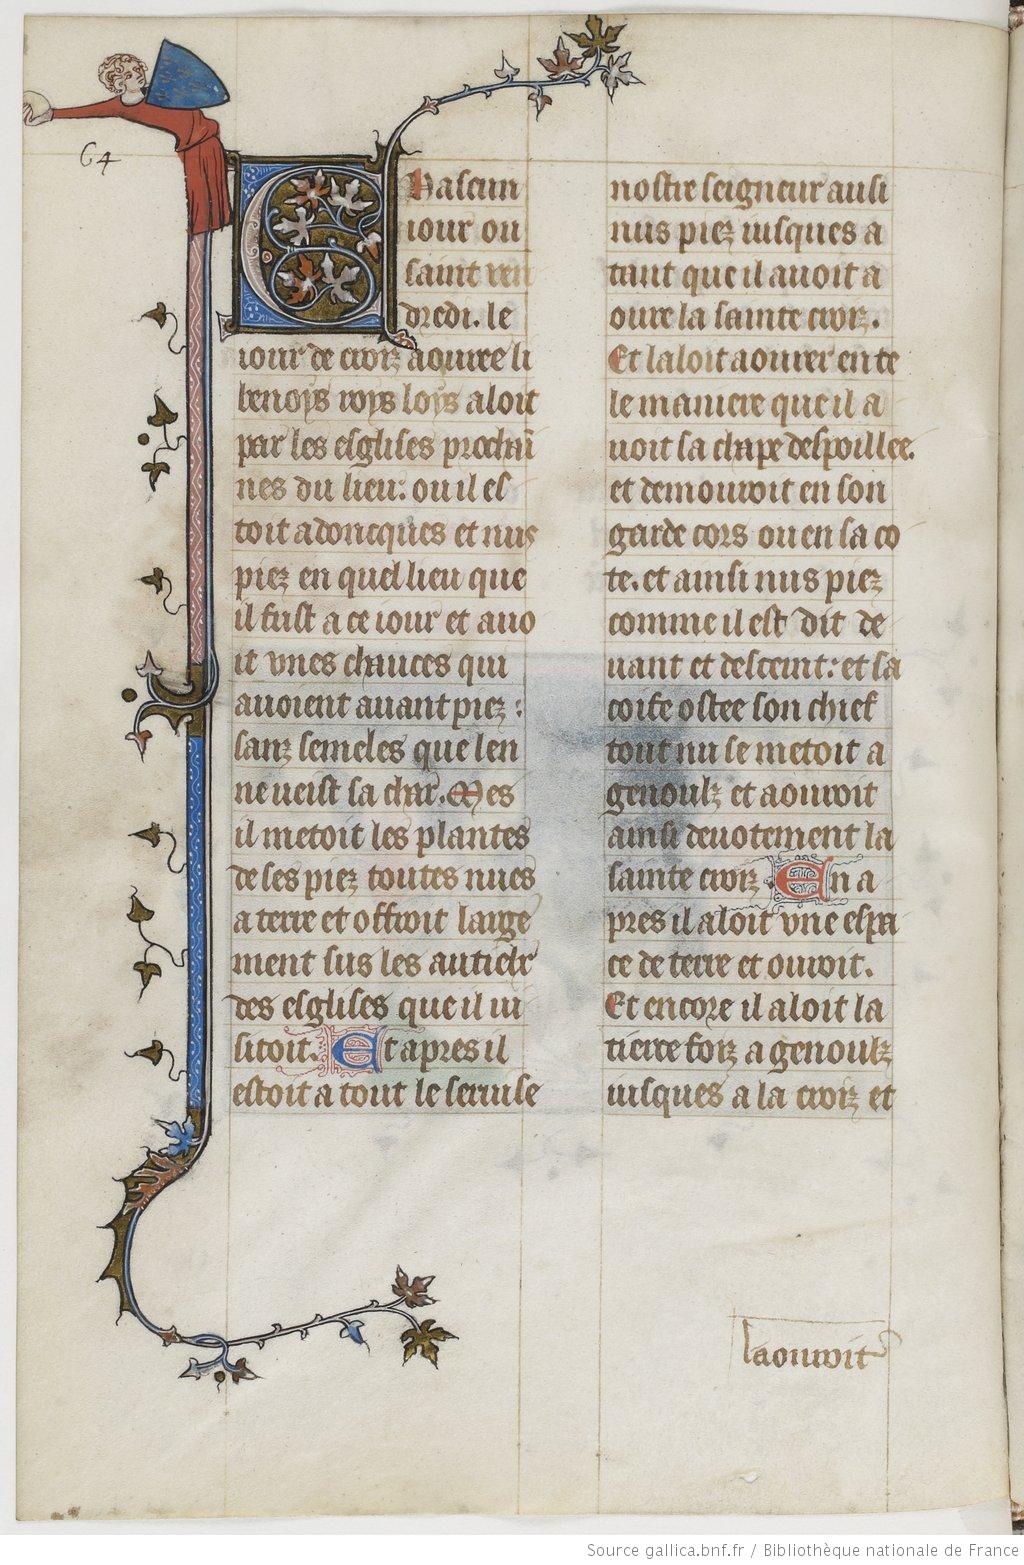 64
Chascun
iour ou
saint ven
dredi. le
iour de croiz aouree li
benoys roys loys aloit
par les esglises prochai
nes du lieu: ou il es
toit adoncques et nus
piez en quel lieu que
il fust a ce iour et auo
it vnes chauces qui
auoient auant piez:
sanz semeles que len
ne ueist sa char. Mes
il metoit les plantes
de ses piez toutes nues
a terre et offroit large
ment sus les autielx
des esglises que il ui
sitoit. Et apres il
estoit a tout le seruise
nostre seigneur ausi
nus piez iusques a
tant que il auoit a
oure la sainte croiz.
Et laloit aourer en te
le maniere que il a
uoit sa chape despoillee.
et demouroit en son
garde cors ou en sa co
te. et ainsi nus piez
comme il est dit de
uant et desceint: et sa
coife ostee son chief
tout nu se metoit a
genoulz et aouroit
ainsi deuotement la
sainte croiz. En a
pres il aloit vne espa
ce de terre et ouroit.
Et encore il aloit la
tierce foiz a genoulz
iusques a la croiz et
laouroit
Source gallica.bnf.fr / Bibliothèque nationale de France